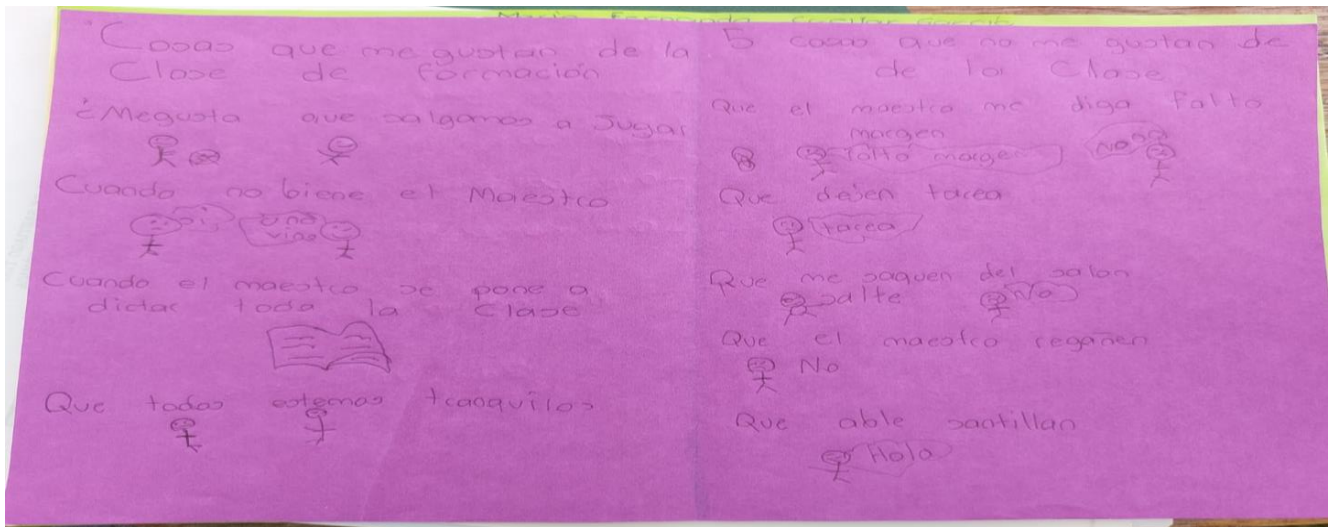 Cosas que me gustan de la
Clase de formación
¿Megusta que salgamos a Jugar
Cuando no biene el Maestro
si,
no
vino
Cuando el maestro se pone a
dictar toda la Clase
Que todos estemos tranquilos
5 cosas que no me gustan de
de la Clase
Que el maestro me diga falto
margen
falto margen
No
Que dejen tarea
tarea
Que me saquen del salon
salte
No
Que el maestro regañen
No
Que able santillan
Hola